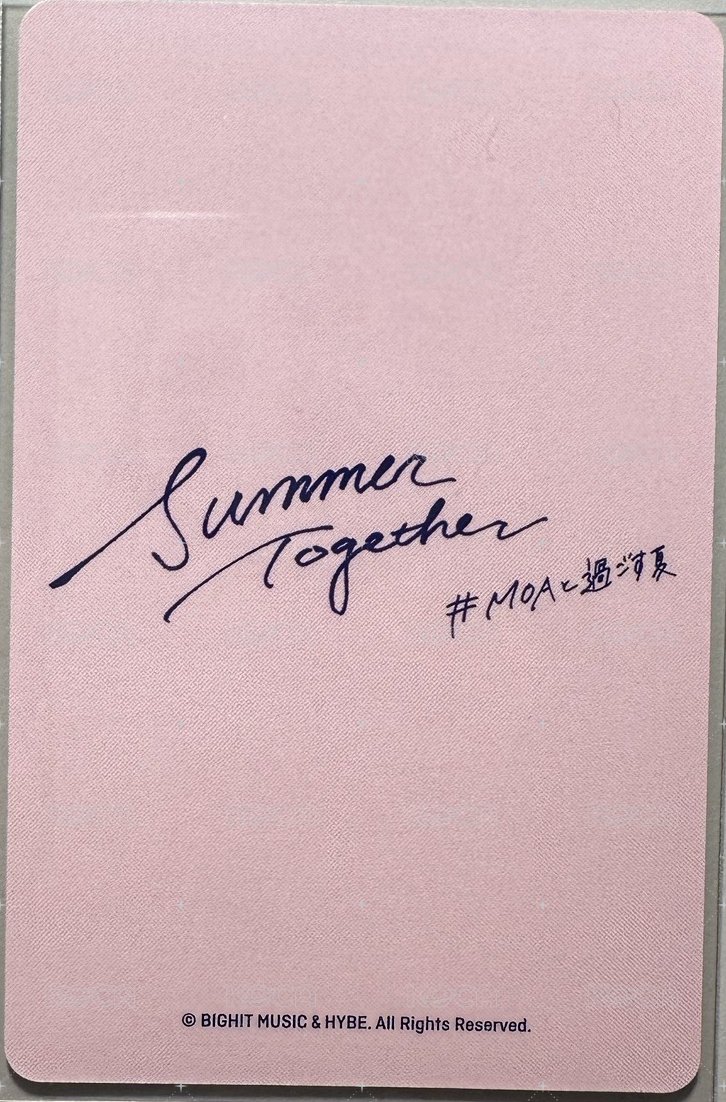 Summer
Together
#MOAと過ごす夏
© BIGHIT MUSIC & HYBE. All Rights Reserved.